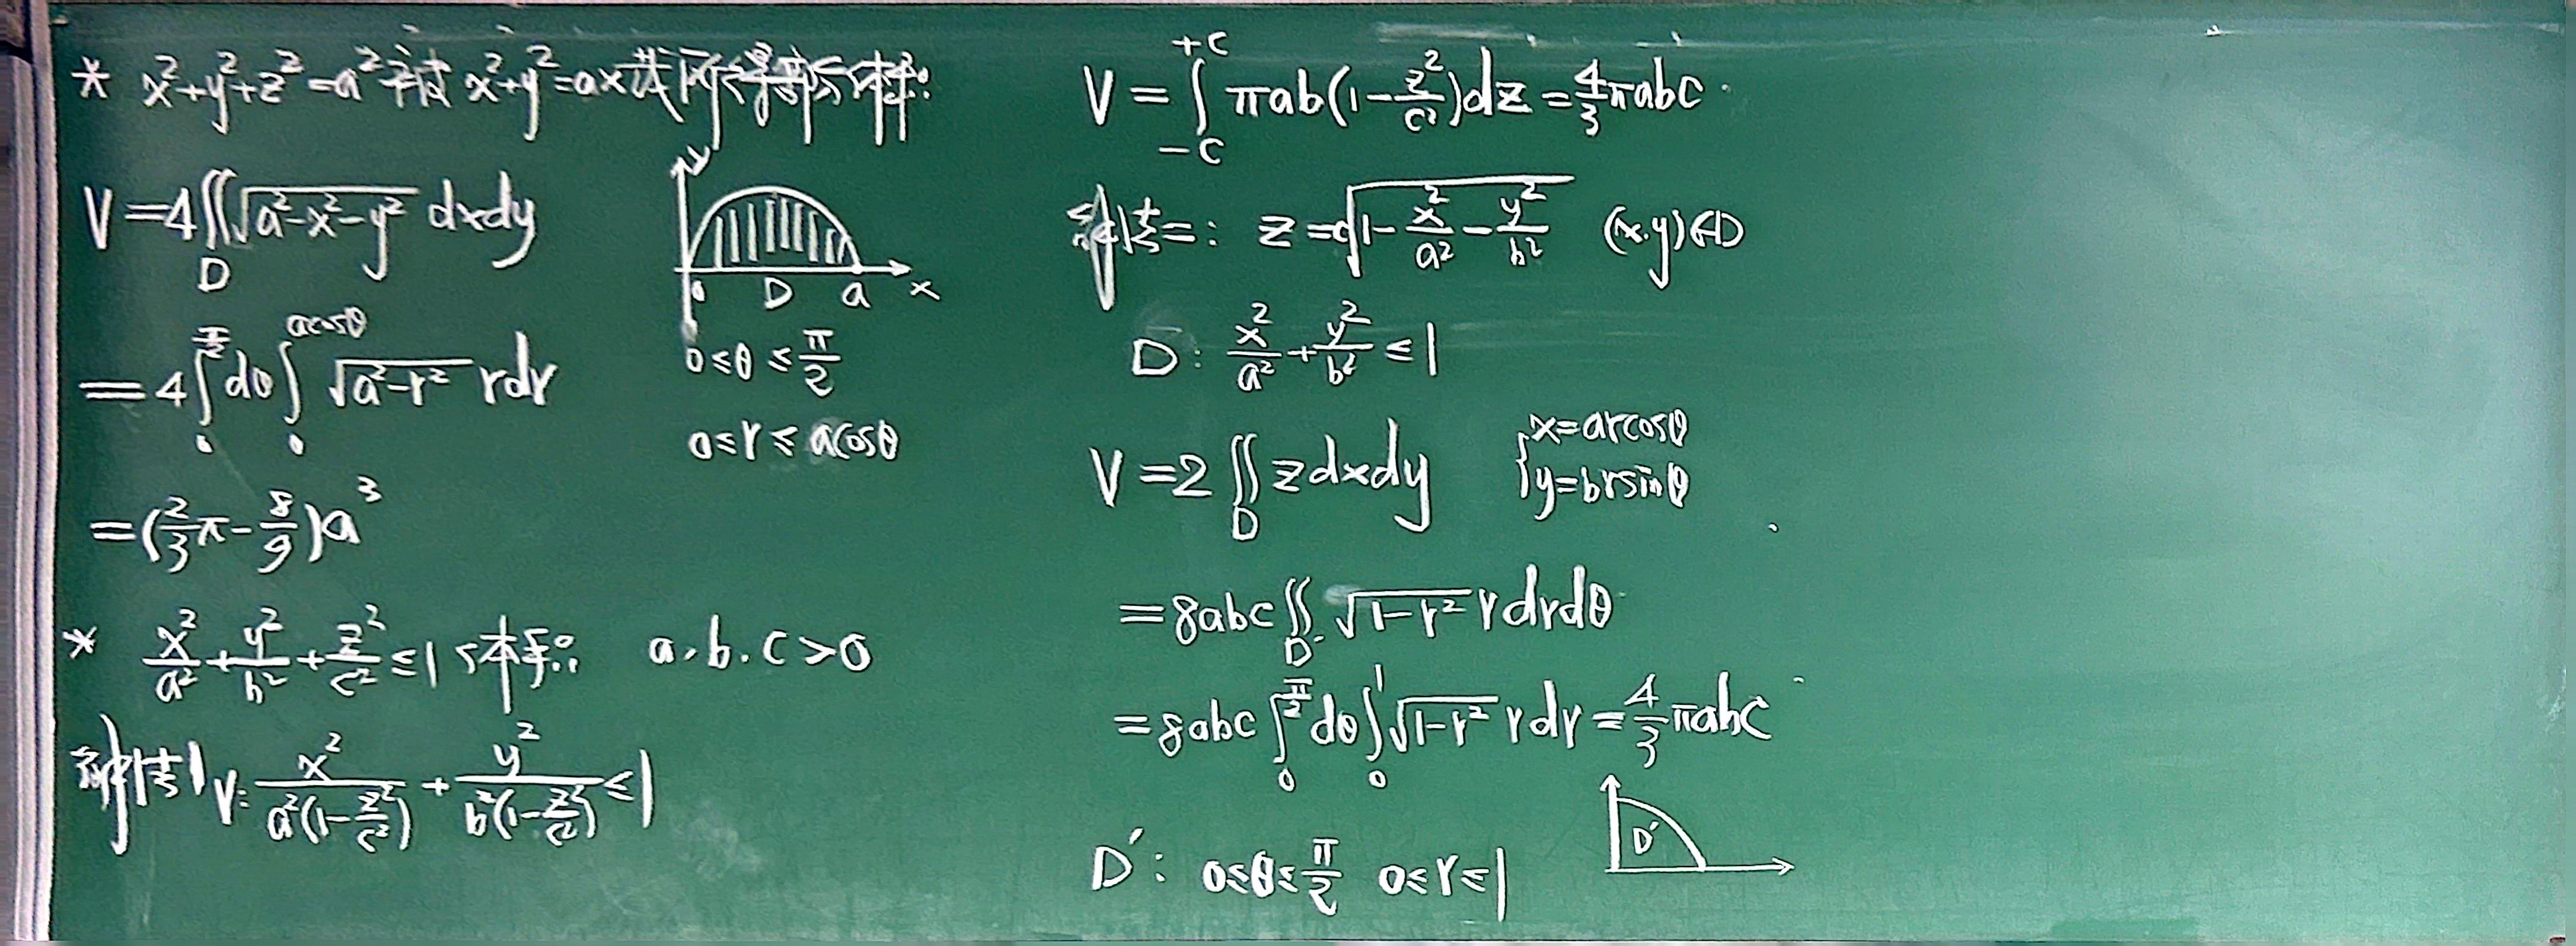 * x²+y²+z²=a² 被 x²+y²=ax 截所得部分体积:
V=4∬_D √(a²-x²-y²) dxdy
y
0 D a x
=4∫_0^{π/2} dθ ∫_0^{acosθ} √(a²-r²) rdr
0≤θ≤π/2
0≤r≤acosθ
=(2/3 π - 8/9)a³
* x²/a² + y²/b² + z²/c² ≤1 体积: a,b.c>0
解法1 V: x²/(a²(1-z²/c²)) + y²/(b²(1-z²/c²)) ≤1
V=∫_{-c}^{+c} πab(1-z²/c²)dz = 4/3 πabc
解法二: z=c√(1-x²/a²-y²/b²) (x.y)∈D
D: x²/a² + y²/b² ≤1
V=2∬_D zdxdy {x=arcosθ
y=brsinθ
=8abc∬_{D'} √(1-r²) rdrdθ
=8abc∫_0^{π/2} dθ∫_0^1 √(1-r²) rdr = 4/3 πabc
D': 0≤θ≤π/2 0≤r≤1
D'